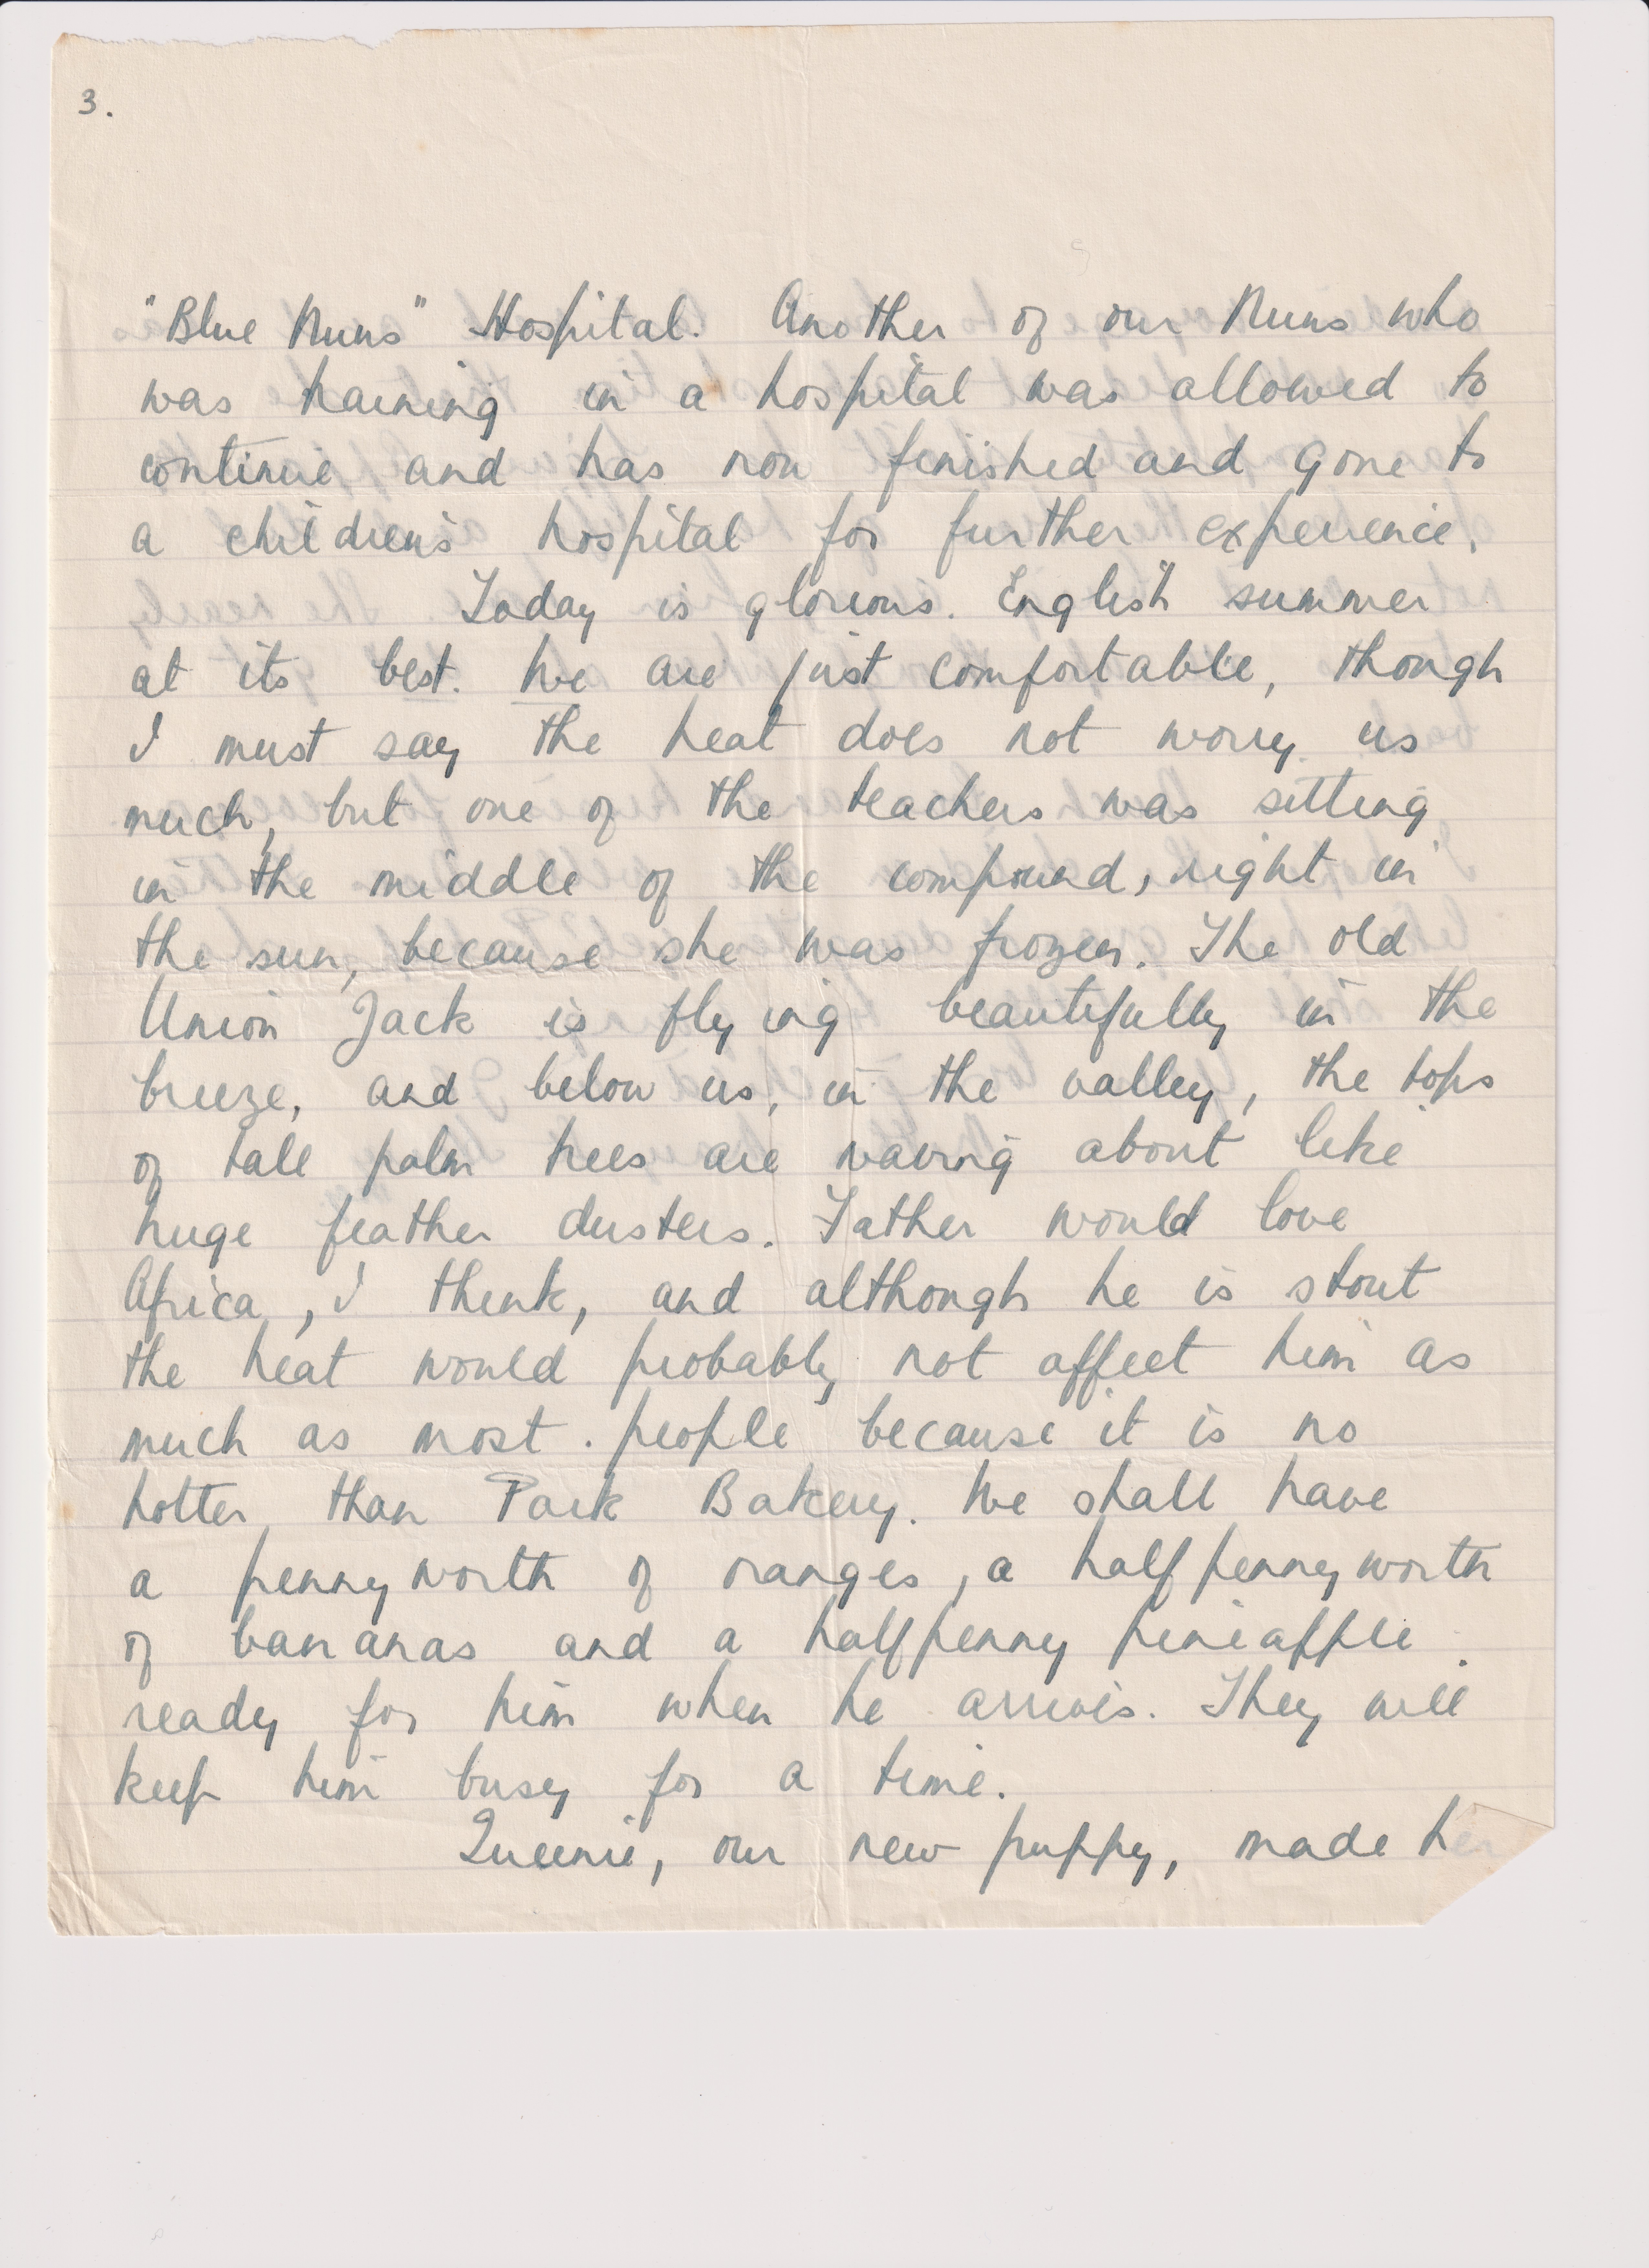 3.
"Blue Nuns" Hospital. Another of our Nuns who
was training in a hospital was allowed to
continue and has now finished and gone to
a children's hospital for further experience.
Today is glorious. English summer
at its best. We are just comfortable, though
I must say the heat does not worry us
much, but one of the teachers was sitting
in the middle of the compound, right in
the sun, because she was frozen. The old
Union Jack is flying beautifully in the
breeze, and below us, in the valley, the tops
of tall palm trees are waving about like
huge feather dusters. Father would love
Africa, I think, and although he is stout
the heat would probably not affect him as
much as most people because it is no
hotter than Park Bakery. We shall have
a pennyworth of oranges, a halfpennyworth
of bananas and a halfpenny pineapple
ready for him when he arrives. They will
keep him busy for a time.
Queenie, our new puppy, made her